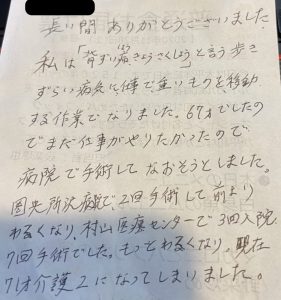 長い間 ありがとうございました
私は「背ずいきょうさくしょう」と言う歩き
ずらい病気に仕事で重いものを移動
する作業でなりました。67才でしたの
でまだ仕事がやりたかったので
病院で手術してなおそうとしました。
圏央所沢病院で2回手術して前より
わるくなり、村山医療センターで3回入院
7回手術でした。もっとわるくなり。現在
71才介護2になってしまいました。